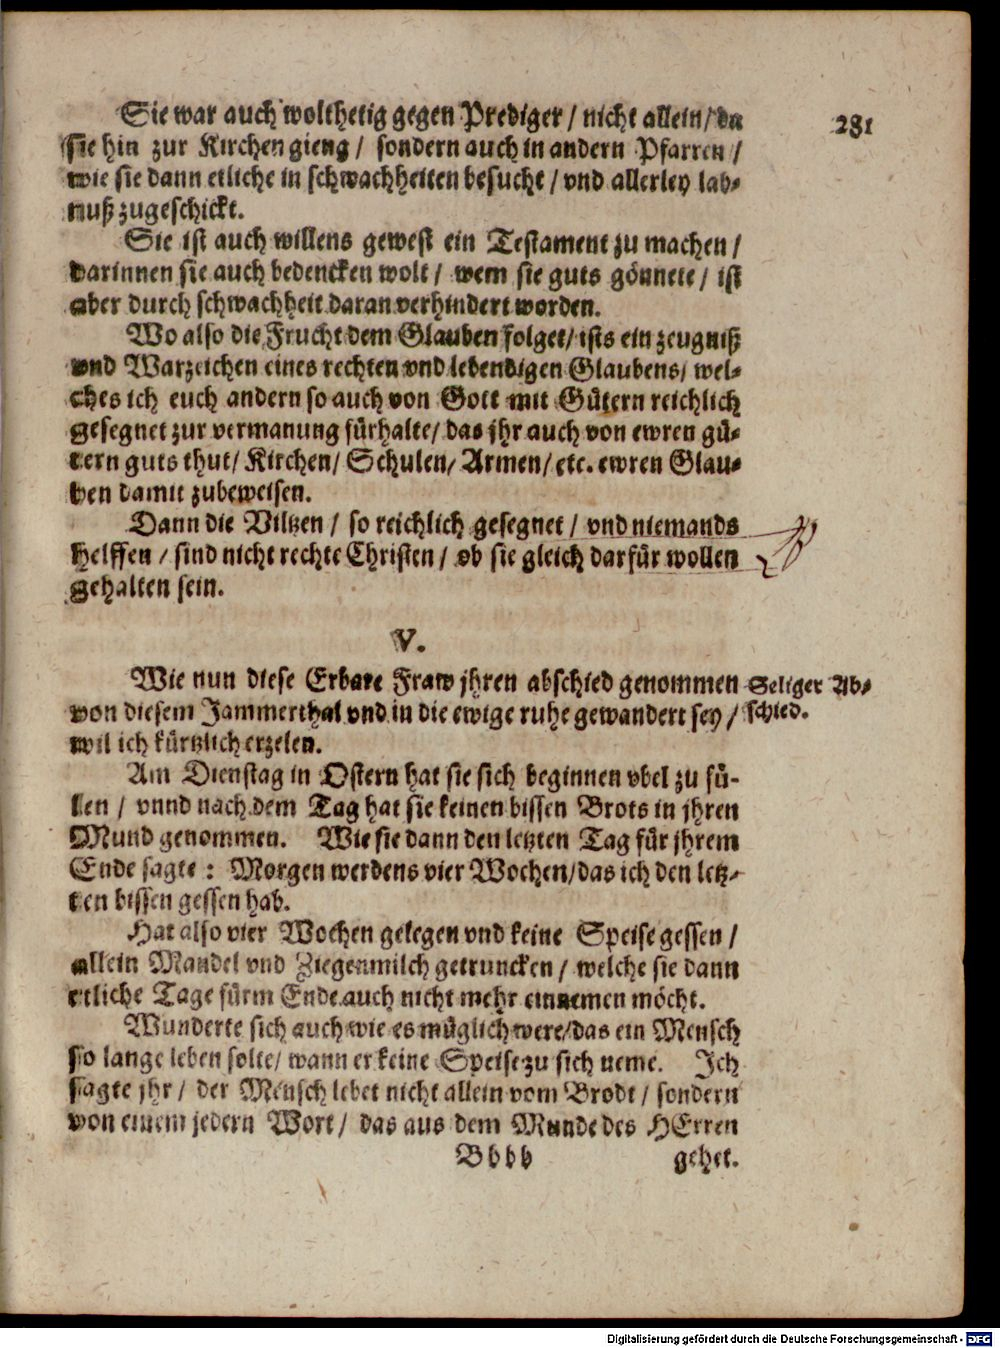 281
Sie war auch wolthetig gegen Prediger / nicht allein / da
sie hin zur Kirchen gieng / sondern auch in andern Pfarren /
wie sie dann etliche in schwachheiten besucht / vnd allerley lab-
nuß zugeschickt.
Sie ist auch willens gewest ein Testament zu machen /
darinnen sie auch bedencken wolt / wem sie guts gönnete / ist
aber durch schwachheit daran verhindert worden.
Wo also die Frucht dem Glauben folget / ists ein zeugniß
vnd Warzeichen eines rechten vnd lebendigen Glaubens / wel-
ches ich euch andern so auch von Gott mit Gütern reichlich
gesegnet zur vermanung fürhalte / das jhr auch von ewren gü-
tern guts thut / Kirchen / Schulen / Armen / etc. ewren Glau-
ben damit zubeweisen.
Dann die Viltzen / so reichlich gesegnet / vnd niemands
helffen / sind nicht rechte Christen / ob sie gleich darfür wollen
gehalten sein.
V.
Wie nun diese Erbare Fraw jhren abschied genommen
von diesem Jammerthal vnd in die ewige ruhe gewandert sey /
wil ich kürtzlich erzelen.
Seliger Ab-
schied.
Am Dienstag in Ostern hat sie sich beginnen vbel zu fü-
len / vnnd nach dem Tag hat sie keinen bissen Brots in jhren
Mund genommen. Wie sie dann den letzten Tag für jhrem
Ende sagte : Morgen werdens vier Wochen / das ich den letz-
ten bissen gessen hab.
Hat also vier Wochen gelegen vnd keine Speise gessen /
allein Mandel vnd Ziegenmilch getruncken / welche sie dann
etliche Tage fürm Ende auch nicht mehr einnemen möcht.
Wunderte sich auch wie es müglich were / das ein Mensch
so lange leben solte / wann er keine Speise zu sich neme. Ich
sagte jhr / der Mensch lebet nicht allein vom Brodt / sondern
von einem jedern Wort / das aus dem Munde des HErren
Bbbb gehet.
Digitalisierung gefördert durch die Deutsche Forschungsgemeinschaft - DFG